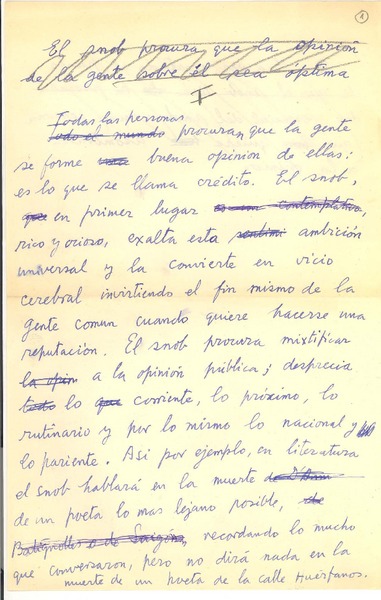 1
El snob procura que la opinión
de la gente sobre él sea óptima
I
Todas las personas
todo el mundo procuran que la gente
se forme una buena opinión de ellas;
es lo que se llama crédito. El snob,
que en primer lugar es un contemplativo,
rico y ocioso, exalta esta ambición
universal y la convierte en vicio
cerebral invirtiendo el fin mismo de la
gente común cuando quiere hacerse una
reputación. El snob procura mixtificar
la opin a la opinión pública; desprecia
todo lo que corriente, lo próximo, lo
rutinario y por lo mismo lo nacional y
lo pariente. Asi por ejemplo, en literatura
el snob hablará en la muerte
de un poeta lo mas lejano posible, de
Batignolles o de Saigón, recordando lo mucho
que conversaron, pero no dirá nada en la
muerte de un poeta de la calle Huérfanos.